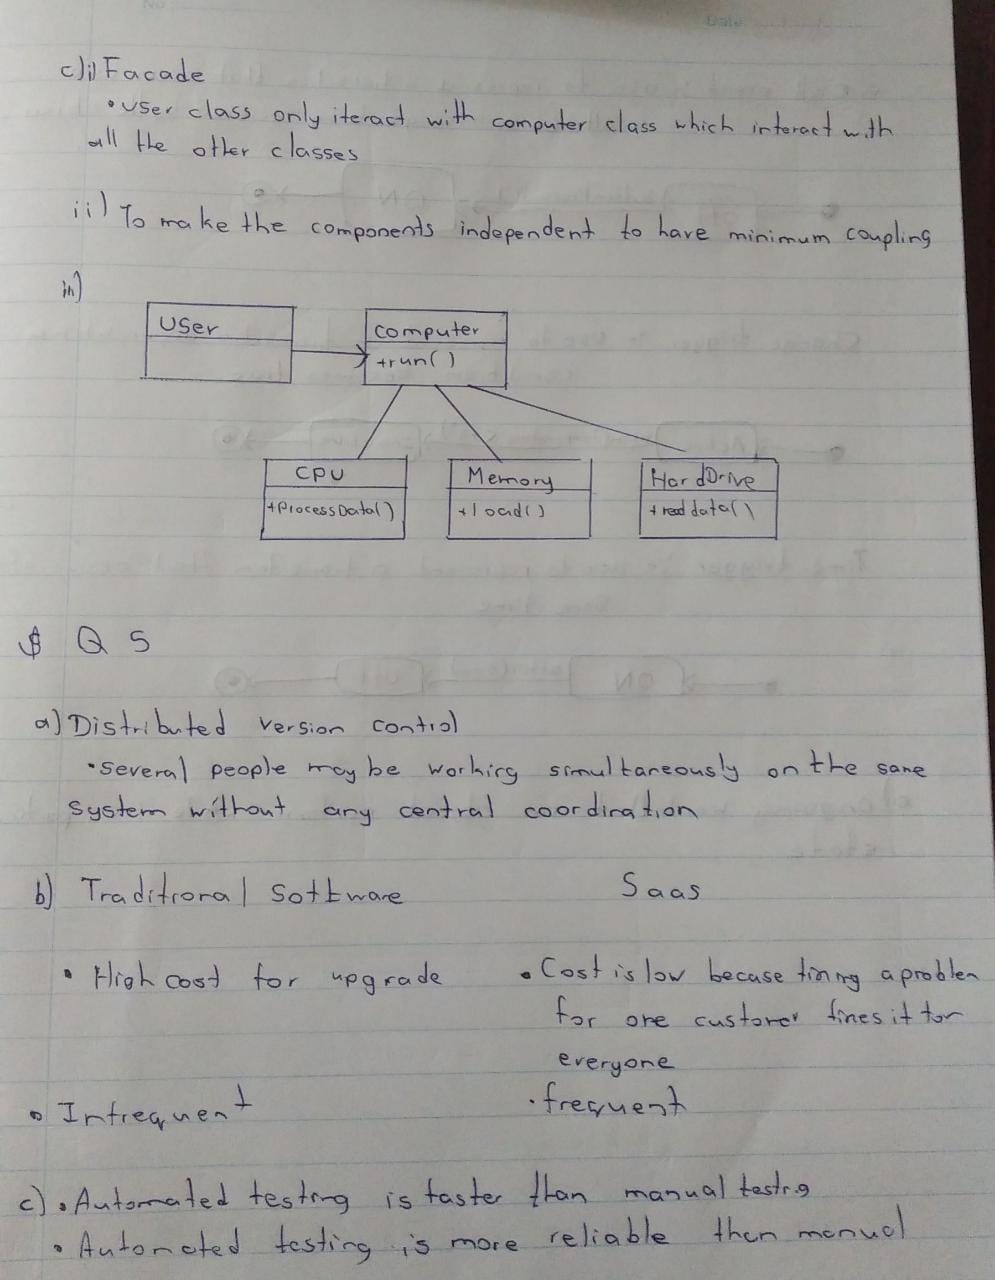 Date
c)i) Facade
• User class only iteract with computer class which interact with
all the other classes
ii) To make the components independent to have minimum coupling
iii)
User
computer
+run()
CPU
+ProcessData()
Memory
+load()
HardDrive
+read data()
Q 5
a) Distributed version control
• Several people may be working simultaneously on the same
system without any central coordination
b) Traditional Software
Saas
• High cost for upgrade
• Cost is low becase fixing a problem
for one customer fixes it for
everyone
• Infrequent
• frequent
c) • Automated testing is faster than manual testing
• Automated testing is more reliable than manual